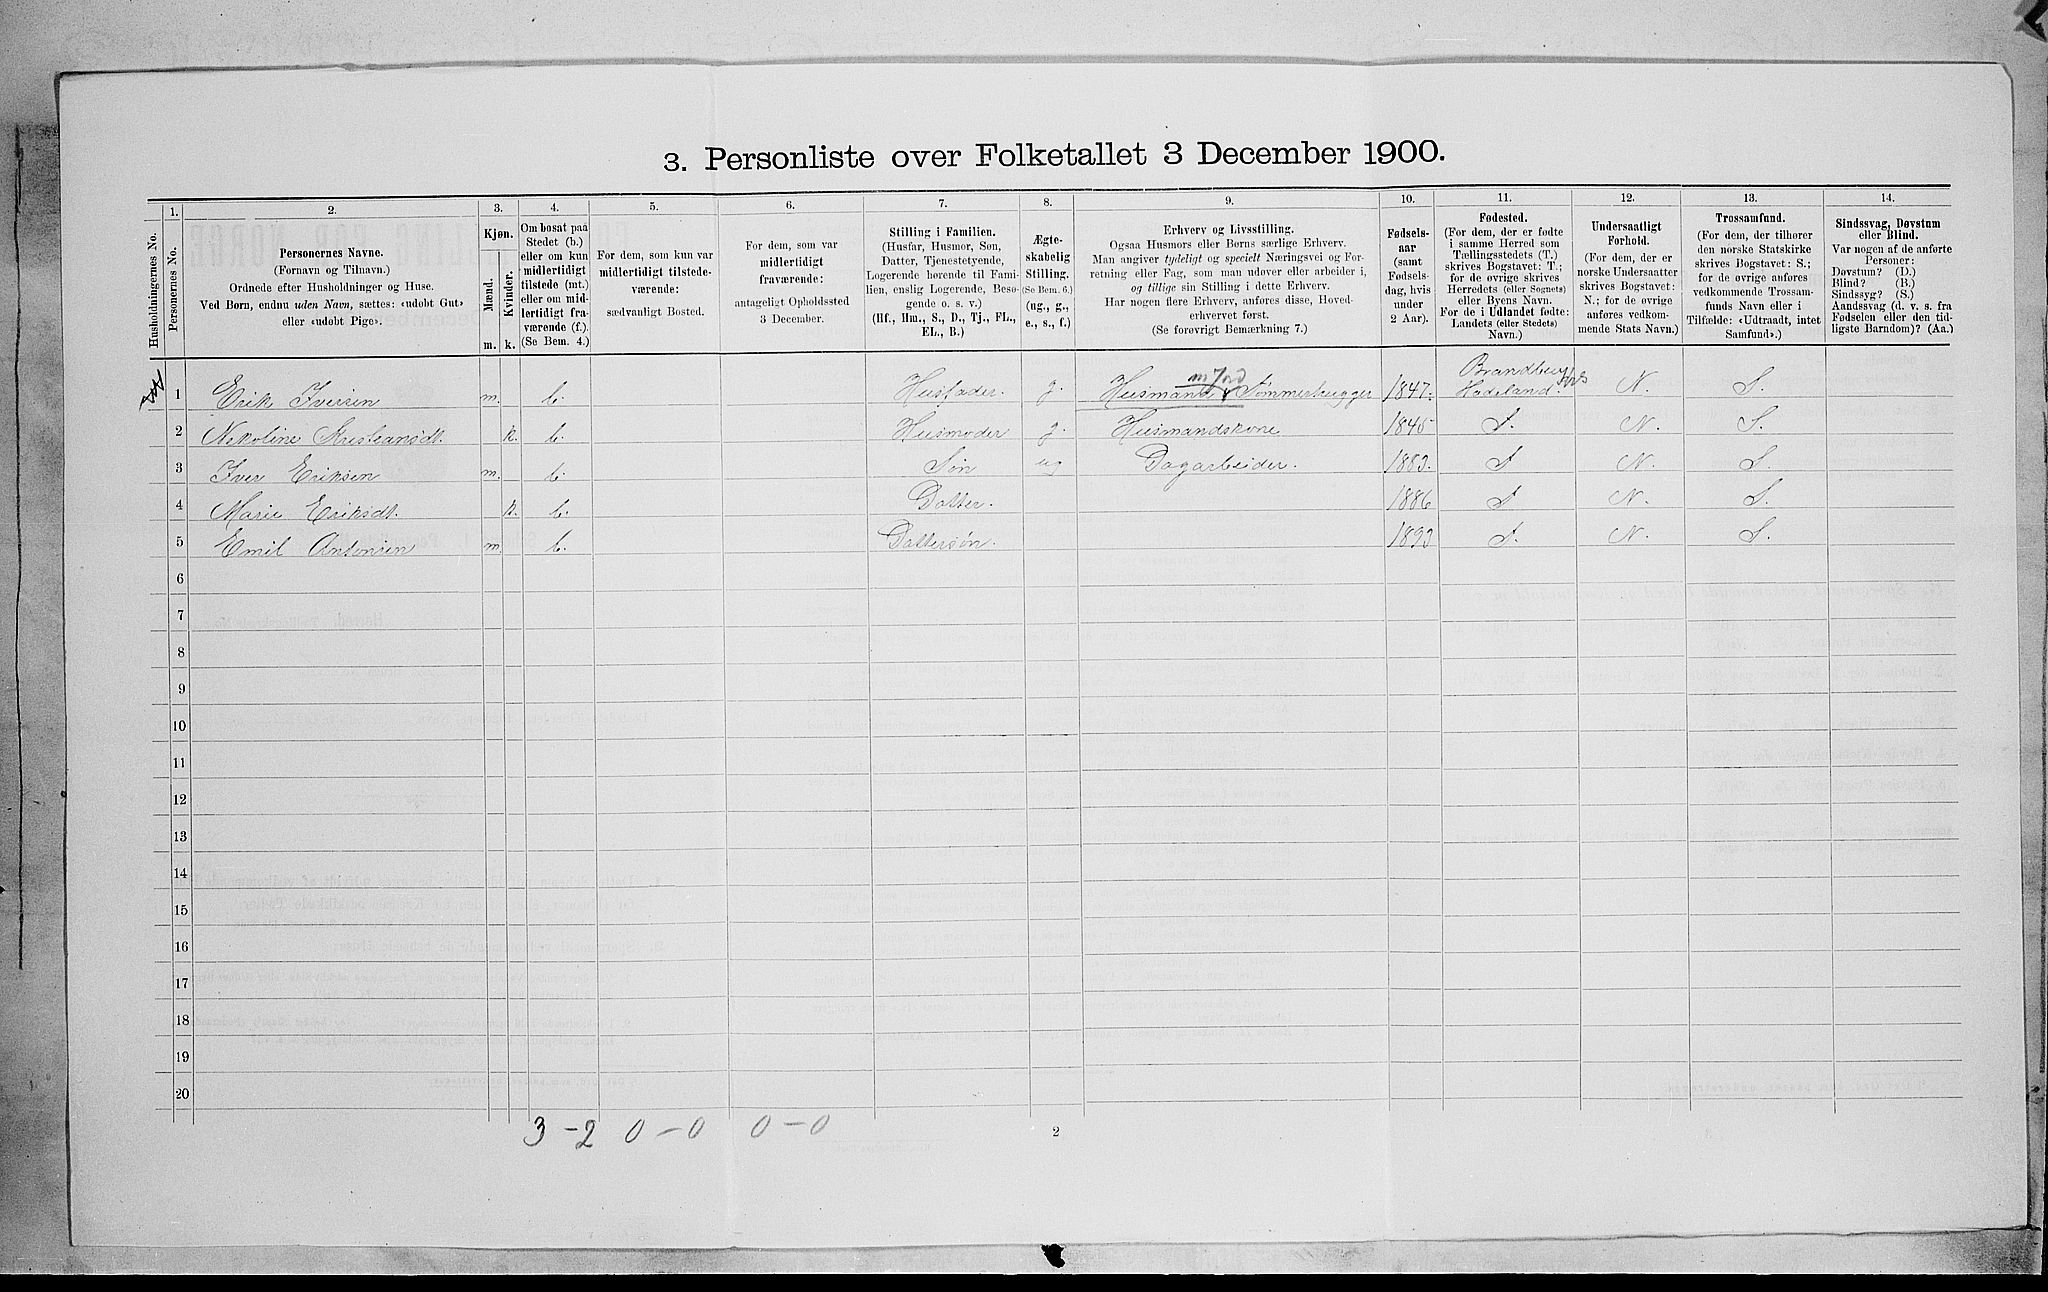 3. Personliste over Folketallet 3 December 1900.
1. 2. 3. 4. 5. 6. 7. 8. 9. 10. 11. 12. 13. 14.
Husholdningernes No.
Personernes No.
Personernes Navne.
(Fornavn og Tilnavn.)
Ordnede efter Husholdninger og Huse.
Ved Børn, endnu uden Navn, sættes: «udøbt Gut»
eller «udøbt Pige».
Kjøn.
Mænd.
Kvinder.
m. k.
Om bosat paa
Stedet (b.)
eller om kun
midlertidigt
tilstede (mt.)
eller om mid-
lertidigt fra-
værende (f.)
(Se Bem. 4.)
For dem, som kun var
midlertidigt tilstede-
værende:
sædvanligt Bosted.
For dem, som var
midlertidigt
fraværende:
antageligt Opholdssted
3 December.
Stilling i Familien.
(Husfar, Husmor, Søn,
Datter, Tjenestetyende,
Logerende hørende til Fami-
lien, enslig Logerende, Besø-
gende o. s. v.)
(Hf., Hm., S., D., Tj., FL.,
EL., B.)
Ægte-
skabelig
Stilling.
(Se Bem. 6.)
(ug., g.,
e., s., f.)
Erhverv og Livsstilling.
Ogsaa Husmors eller Børns særlige Erhverv.
Man angiver tydeligt og specielt Næringsvei og For-
retning eller Fag, som man udøver eller arbeider i,
og tillige sin Stilling i dette Erhverv.
Har nogen flere Erhverv, anføres disse, Hoved-
erhvervet først.
(Se forøvrigt Bemærkning 7.)
Fødsels-
aar
(samt
Fødsels-
dag, hvis
under
2 Aar).
Fødested.
(For dem, der er fødte
i samme Herred som
Tællingsstedets (T.)
skrives Bogstavet: T.;
for de øvrige skrives
Herredets (eller Sognets)
eller Byens Navn.
For de i Udlandet fødte:
Landets (eller Stedets)
Navn.)
Undersaatligt
Forhold.
(For dem, der er
norske Undersaatter
skrives Bogstavet:
N.; for de øvrige
anføres vedkom-
mende Stats Navn.)
Trossamfund.
(For dem, der tilhører
den norske Statskirke
skrives Bogstavet: S.;
for de øvrige anføres
vedkommende Trossam-
funds Navn eller i
Tilfælde: «Udtraadt, intet
Samfund».)
Sindssvag, Døvstum
eller Blind.
Var nogen af de anførte
Personer:
Døvstum? (D.)
Blind? (B.)
Sindssyg? (S.)
Aandssvag (d. v. s. fra
Fødselen eller den tid-
ligste Barndom)? (Aa.)
m Jord
Brandbu
1 Erik Iversen m. b. Husfader. g. Husmand Tømmerhugger 1847. Hadeland. N. S.
2 Nekoline Kristiansdt. k. b. Husmoder g. Husmandskone 1845 T. N. S.
3 Iver Eriksen m. b. Søn ug Dagarbeider. 1883. T N. S.
4 Marie Eriksdt. k. b. Datter. 1886 T N. S.
5 Emil Antonsen m. b. Dattersøn. 1893 T. N. S.
6
7
8
9
10
11
12
13
14
15
16
17
18
19
20
3 - 2 0 - 0 0 - 0
2